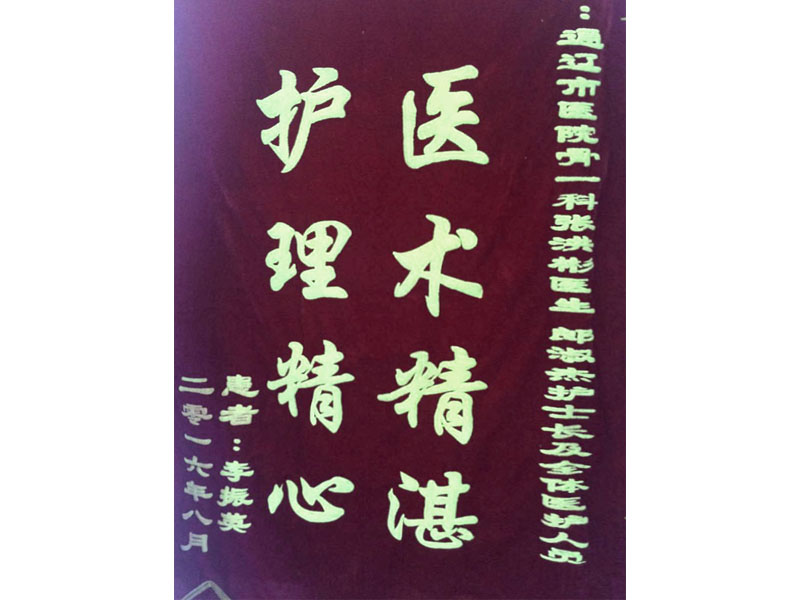 ：通辽市医院骨一科张洪彬医生 郎淑杰护士长及全体医护人员
医术精湛
护理精心
患者：李振英
二零一六年八月